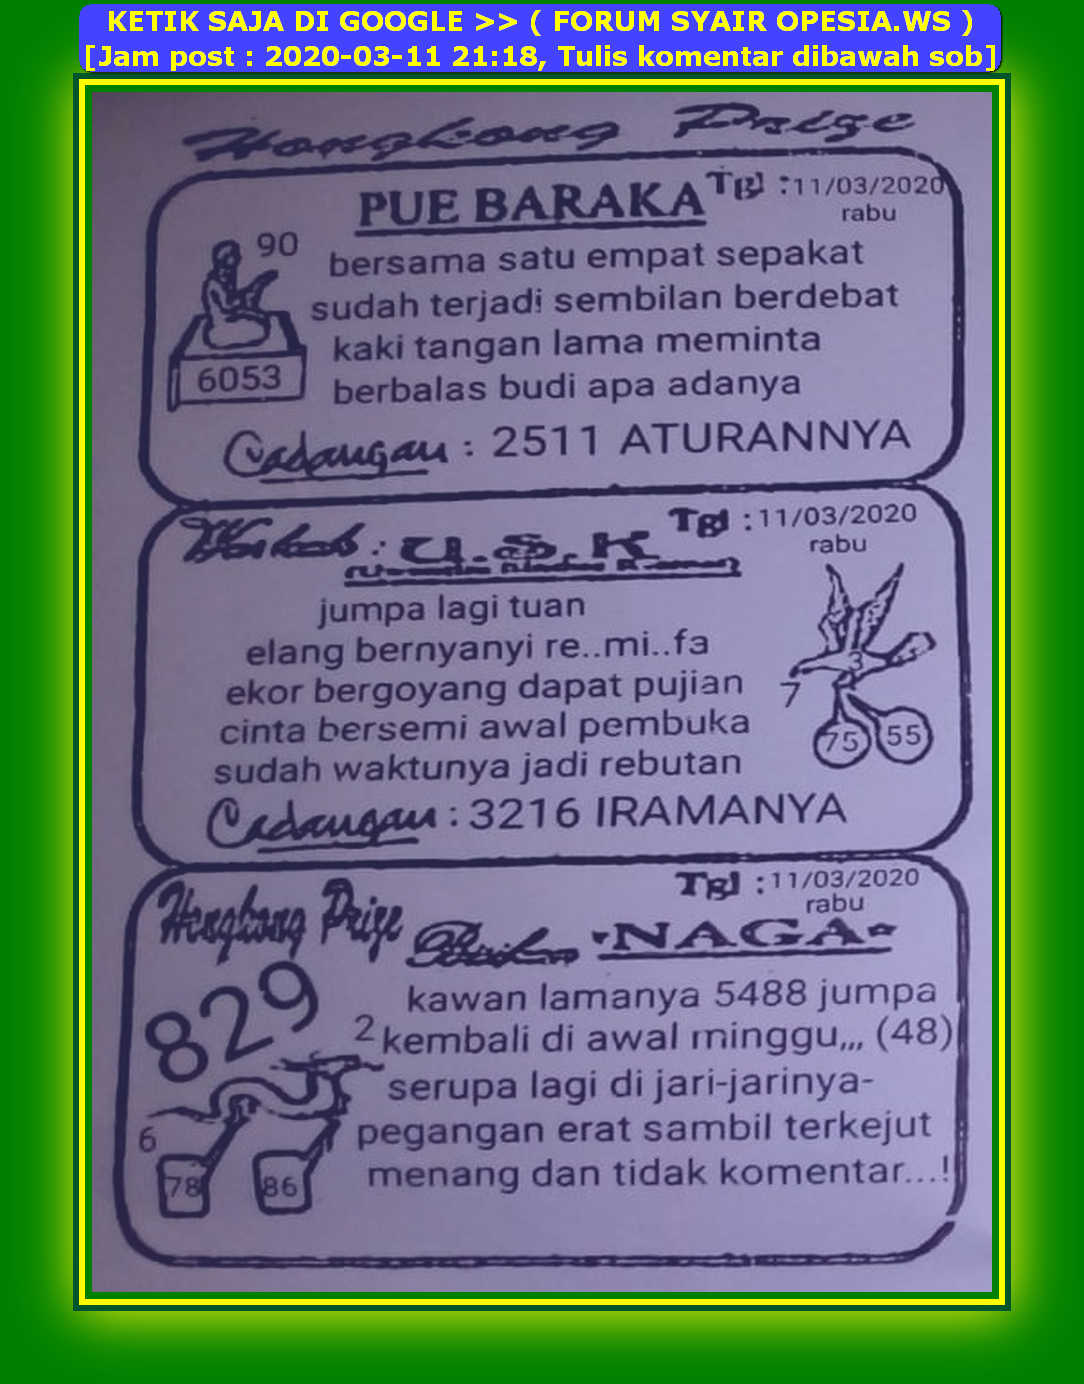 KETIK SAJA DI GOOGLE >> ( FORUM SYAIR OPESIA.WS )
[Jam post : 2020-03-11 21:18, Tulis komentar dibawah sob]
Hongkong Prize
PUE BARAKA
Tgl : 11/03/2020
rabu
90
6053
bersama satu empat sepakat
sudah terjadi sembilan berdebat
kaki tangan lama meminta
berbalas budi apa adanya
Cadangan : 2511 ATURANNYA
: U.S.K
Tgl : 11/03/2020
rabu
jumpa lagi tuan
elang bernyanyi re..mi..fa
ekor bergoyang dapat pujian
cinta bersemi awal pembuka
sudah waktunya jadi rebutan
3
7
75
55
Cadangan : 3216 IRAMANYA
Hongkong Prize
Tgl : 11/03/2020
rabu
NAGA
829
2
6
78
86
kawan lamanya 5488 jumpa
kembali di awal minggu,,, (48)
serupa lagi di jari-jarinya-
pegangan erat sambil terkejut
menang dan tidak komentar...!